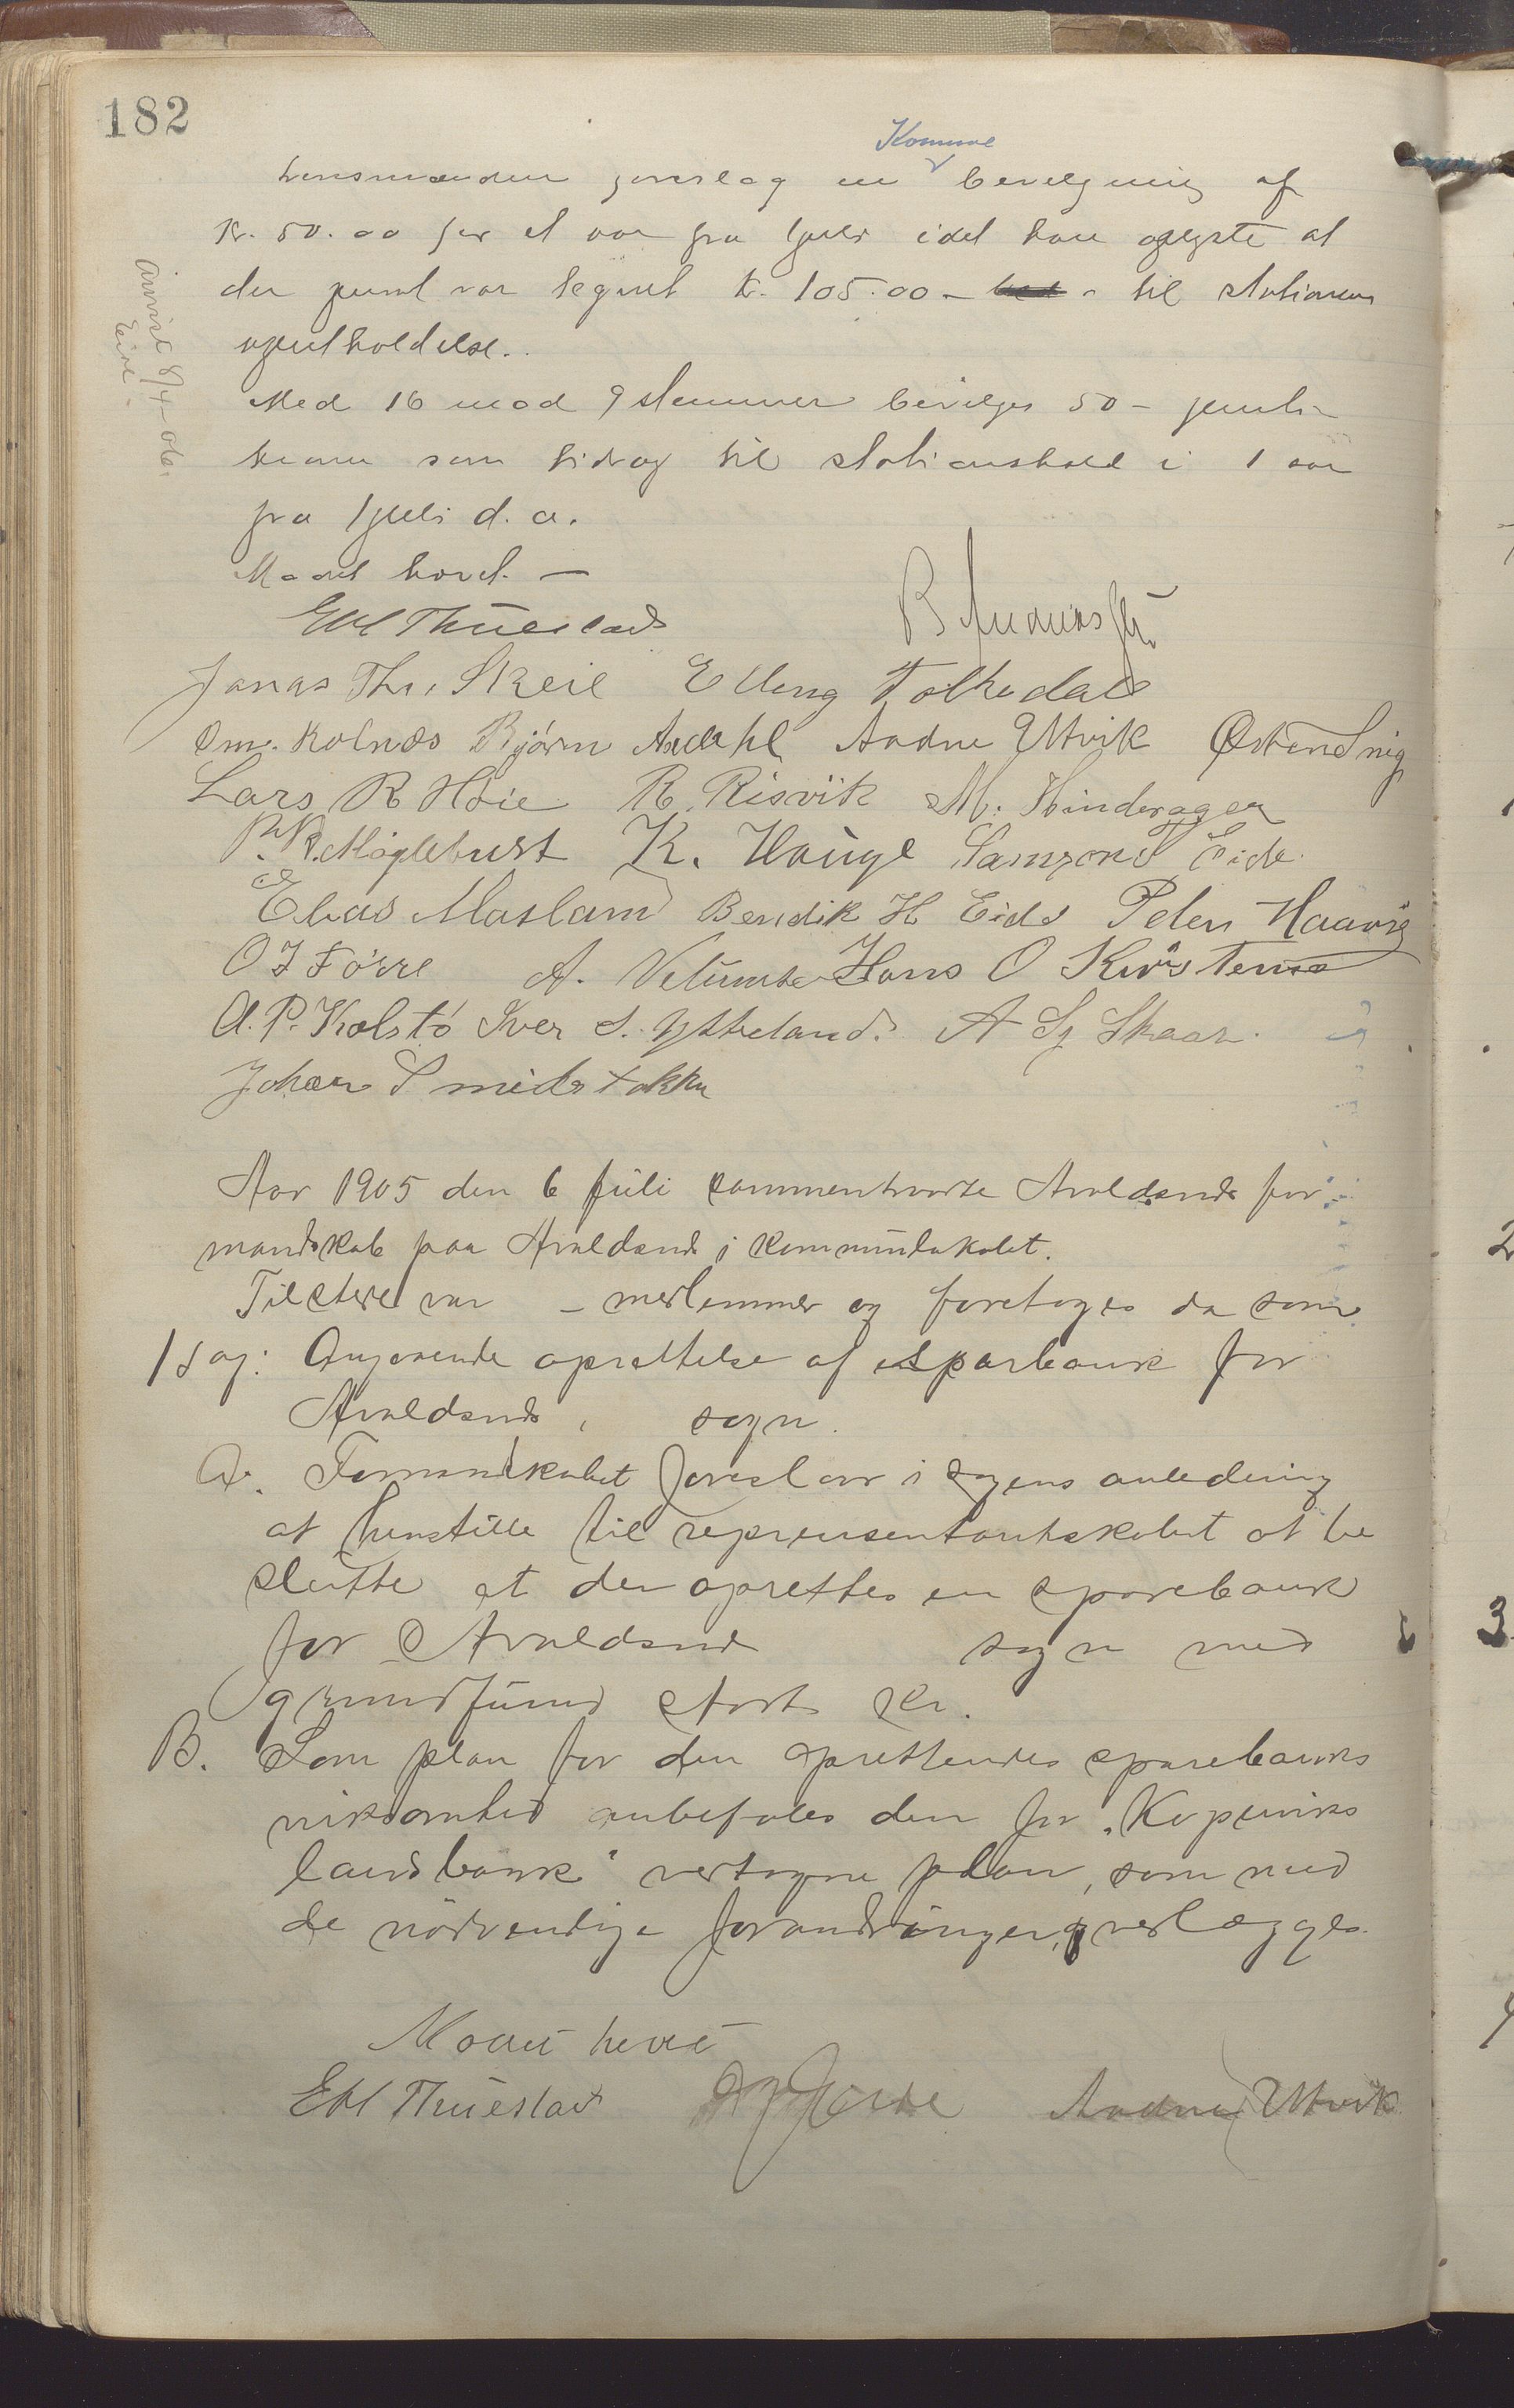 182
Komune
Lensmanden foreslog en bevilgning af
kr. 50.00 for et aar fra 1 juli idet han oplyste at
der privat var tegnet kr. 105.00 - til stationens
opretholdelse.
Med 16 mod 9 stemmer bevilges 50 - femti
kroner som bidrag til stationshold i 1 aar
fra 1 juli d. a.
Mødet hævet. —
Anvist 8/4 06
Eide
Ehl Thuestad
Jonas Th. Skeie Elling Folkedal
Om. Kolnes Bjørn Ardahl Andne Utvik Østen Snig
Lars R Høie R. Risvik M. Hinderager
P. R. Møglebust K. Hauge Samson Eide
Elias Masland Bendik H Eide Peder Haavig
O J Førre A. Velumke Hans O Kvistenes
A. P. Kolstø Iver S. Ytreland. A Sj Skaar.
Johan Smidstokke
Aar 1905 den 6 juli sammentraadte Avaldsnes for
mandskab paa Avaldsnes i kommunelokalet.
Tilstede var - medlemmer og foretoges da som
1 sag: Angaaende oprettelse af Sparbank for
Avaldsnes, sogn.
A. Formandskabet foreslaar i sagens anledning
at henstille til repræsentantskabet at be
slutte at der oprettes en sparebank
for Avaldsnes sogn med
grundfund stort kr.
B. Som plan for den oprettendes sparebanks
virksomhed anbefales den for "Koperviks
landbank" vedtagne plan, som med
de nødvendige forandringer vedlægges.
Mødet hævet
Ehl Thuestad Andne Utvik
2
3